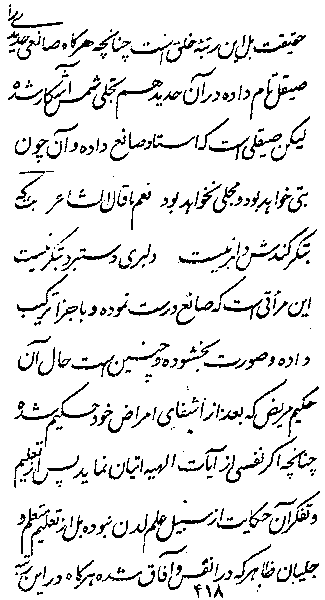 حقیقت بل این رتبهٔ خلق است چنانچه هرگاه صانعی حدید را
صیقل تام داده در آن حدید هم تجلی شمس آشکار شده
لیکن صیقلی است که استاد صانع داده و آن چون
بتی خواهد بود و مجلی نخواهد بود نعم ما قال الشاعر بت که
بتگر کندش دلبر نیست دلبری و ستبرد بتگر نیست
این مرأتی است که صانع درست نموده و باجزا ترکیب
داده و صورت بخشوده و چنین است حال آن
حکیم مریض که بعد از اشفای امراض خود حکیم شده
چنانچه اگر نفسی از آیات الهیه اتیان نماید پس از تعلیم
و تفکر آن حکایت از سبیل علم لدن نبوده بل از تعلیم متعلم و
جلیان ظاهر که در انفس و آفاق شده هرگاه در این رتبه
۴۱۸